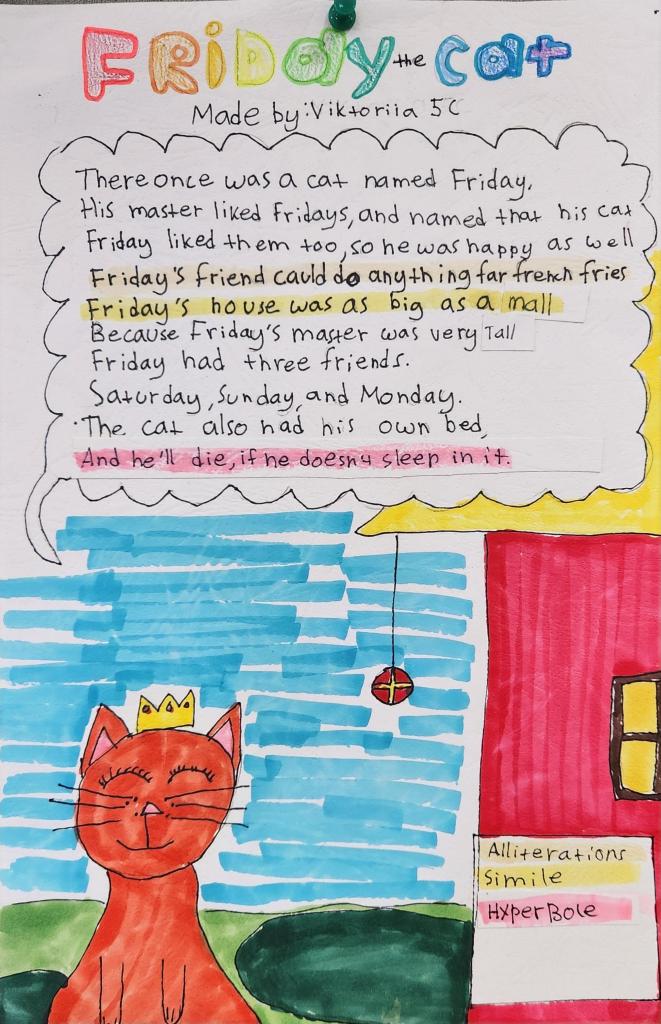 FRiDay the Cat
Made by: Viktoriia 5C
There once was a cat named Friday.
His master liked Fridays, and named that his cat
Friday liked them too, so he was happy as well
Friday's friend cauld do anything far french fries
Friday's house was as big as a mall
Because Friday's master was very Tall
Friday had three friends.
Saturday, Sunday, and Monday.
The cat also had his own bed,
And he'll die, if he doesn4 sleep in it.
Alliterations
Simile
HyperBole